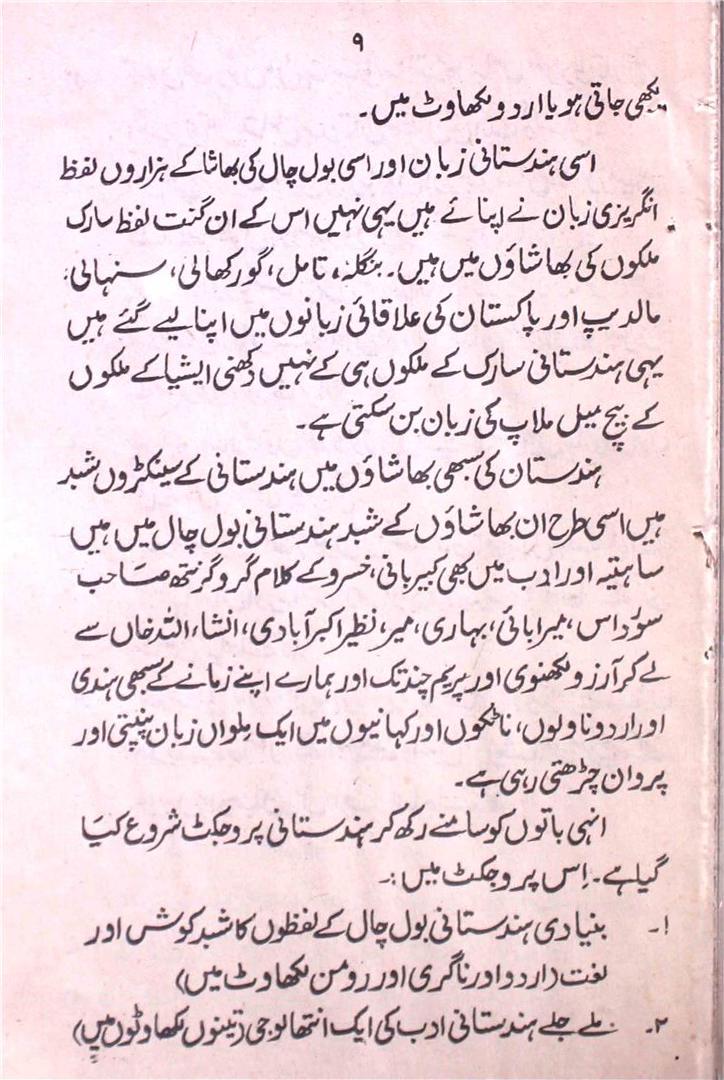 ۹
لکھی جاتی ہو یا اردو لکھاوٹ میں۔
اسی ہندستانی زبان اور اسی بول چال کی بھاشا کے ہزاروں لفظ
انگریزی زبان نے اپنائے ہیں یہی نہیں اس کے ان گنت لفظ سارک
ملکوں کی بھاشاؤں میں ہیں۔ بنگلہ، تامل، گورکھالی، سنہالی،
مالدیپ اور پاکستان کی علاقائی زبانوں میں اپنا لیے گئے ہیں
یہی ہندستانی سارک کے ملکوں ہی کے نہیں دکھنی ایشیا کے ملکوں
کے بیچ میل ملاپ کی زبان بن سکتی ہے۔
ہندستان کی سبھی بھاشاؤں میں ہندستانی کے سینکڑوں شبد
ہیں اسی طرح ان بھاشاؤں کے شبد ہندستانی بول چال میں ہیں
ساہتیہ اور ادب میں بھی کبیر بانی، خسرو کے کلام گرو گرنتھ صاحب
سوُرداس، میرابائی، بہاری، میر، نظیر اکبرآبادی، انشاء اللہ خاں سے
لے کر آرزو لکھنوی اور پریم چند تک اور ہمارے اپنے زمانے کے سبھی ہندی
اور اردو ناولوں، ناٹکوں اور کہانیوں میں ایک مِلواں زبان پنپتی اور
پروان چڑھتی رہی ہے۔
انہی باتوں کو سامنے رکھ کر ہندستانی پروجکٹ شروع کیا
گیا ہے۔ اِس پروجکٹ میں :۔
۱۔ بنیادی ہندستانی بول چال کے لفظوں کا شبد کوش اور
لغت (اردو اور ناگری اور رومن لکھاوٹ میں)
۲۔ ملے جلے ہندستانی ادب کی ایک انتھالوجی (تینوں لکھاوٹوں میں)